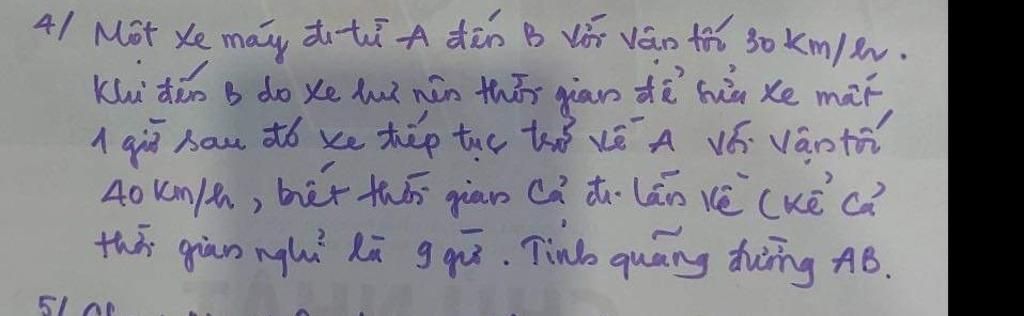 4/ Một xe máy đi từ A đến B với vận tốc 30 km/h.
Khi đến B do xe hư nên thời gian để sửa xe mất
1 giờ sau đó xe tiếp tục trở về A với vận tốc
40 km/h, biết thời gian cả đi lẫn về (kể cả
thời gian nghỉ là 9 giờ. Tính quãng đường AB.
5/